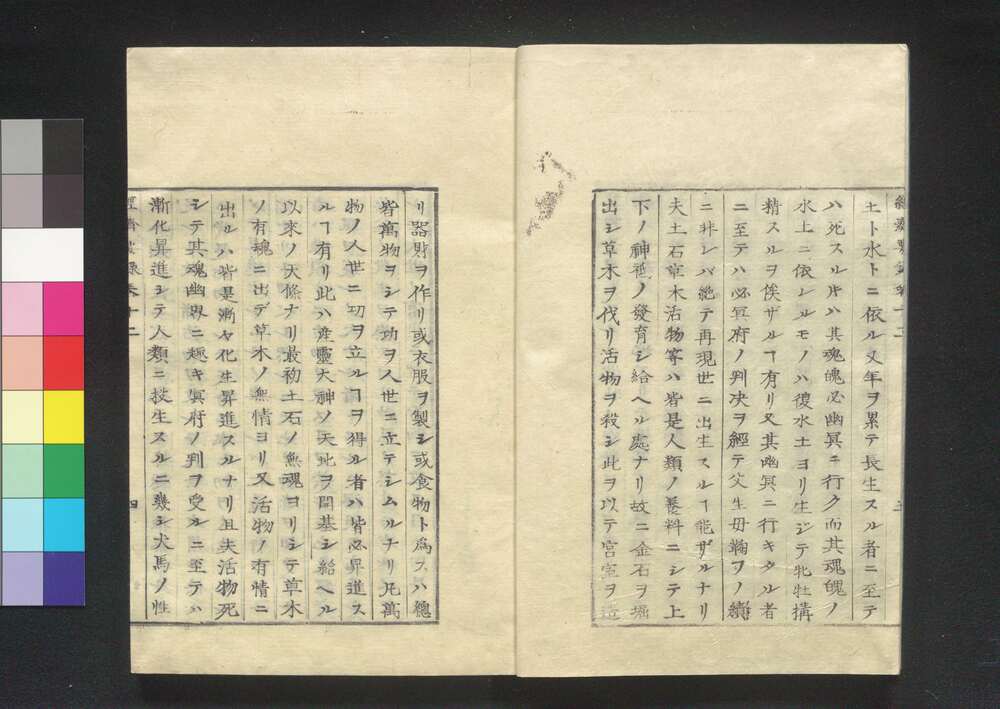 土ト水トニ依ル又年ヲ累テ長生スル者ニ至テ
ハ死スル片ハ其魂魄必幽冥ニ行ク而其魂魄ノ
水土ニ依レルモノハ復水土ヨリ生ジテ牝牡搆
精スルヲ俟ザルヿ有リ又其幽冥ニ行キタル者
ニ至テハ必冥府ノ判决ヲ經テ父生母鞠ヲノ續
ニ非レバ絶テ再現世ニ出生スルヿ能ザルナリ
夫土石草木活物等ハ皆是人類ノ養料ニシテ上
下ノ神祇ノ發育シ給ヘル處ナリ故ニ金石ヲ堀
出シ草木ヲ伐リ活物ヲ殺シ此ヲ以テ宮室ヲ造
リ器財ヲ作リ或衣服ヲ製シ或食物ト爲スハ總
皆萬物ヲシテ功ヲ人世ニ立テシムルナリ凡萬
物ノ人世ニ功ヲ立ルヿヲ得ル者ハ皆必昇進ス
ルヿ有リ此ハ産靈大神ノ天地ヲ開基シ給ヘル
以來ノ天條ナリ最初土石ノ無魂ヨリシテ草木
ノ有魂ニ出デ草木ノ無情ヨリ又活物ノ有情ニ
出ルハ皆是漸々化生昇進スルナリ且夫活物死
シテ其魂幽界ニ趣キ冥府ノ判ヲ受ルニ至テハ
漸化昇進シテ人類ニ技生スルニ幾シ犬馬ノ性
四